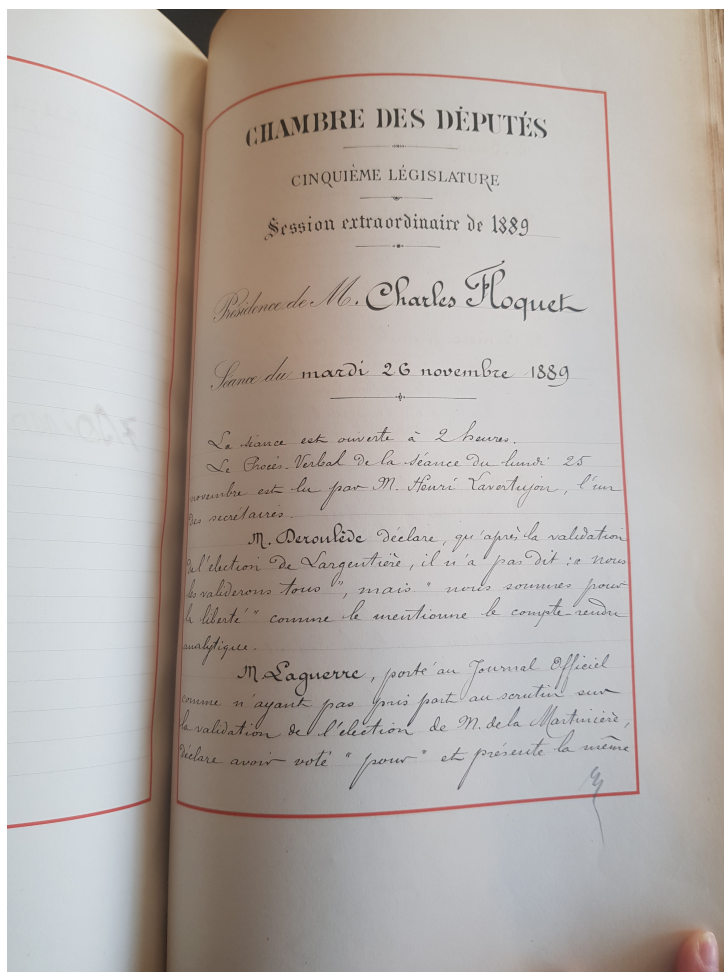 CHAMBRE DES DÉPUTÉS
CINQUIÈME LÉGISLATURE
Session extraordinaire de 1889
Présidence de M. Charles Floquet
Séance du mardi 26 novembre 1889
La séance est ouverte à 2 heures.
Le Procès-Verbal de la séance du lundi 25
novembre est lu par M. Henri Lavertujon, l'un
des secrétaires.
M. Deroulède déclare, qu'après la validation
de l'élection de Largentière, il n'a pas dit : " nous
les validerons tous ", mais " nous sommes pour
la liberté " comme le mentionne le compte-rendu
analytique.
M. Laguerre, porté au Journal Officiel
comme n'ayant pas pris part au scrutin sur
la validation de l'élection de M. de la Martinière,
déclare avoir voté " pour " et présente la même